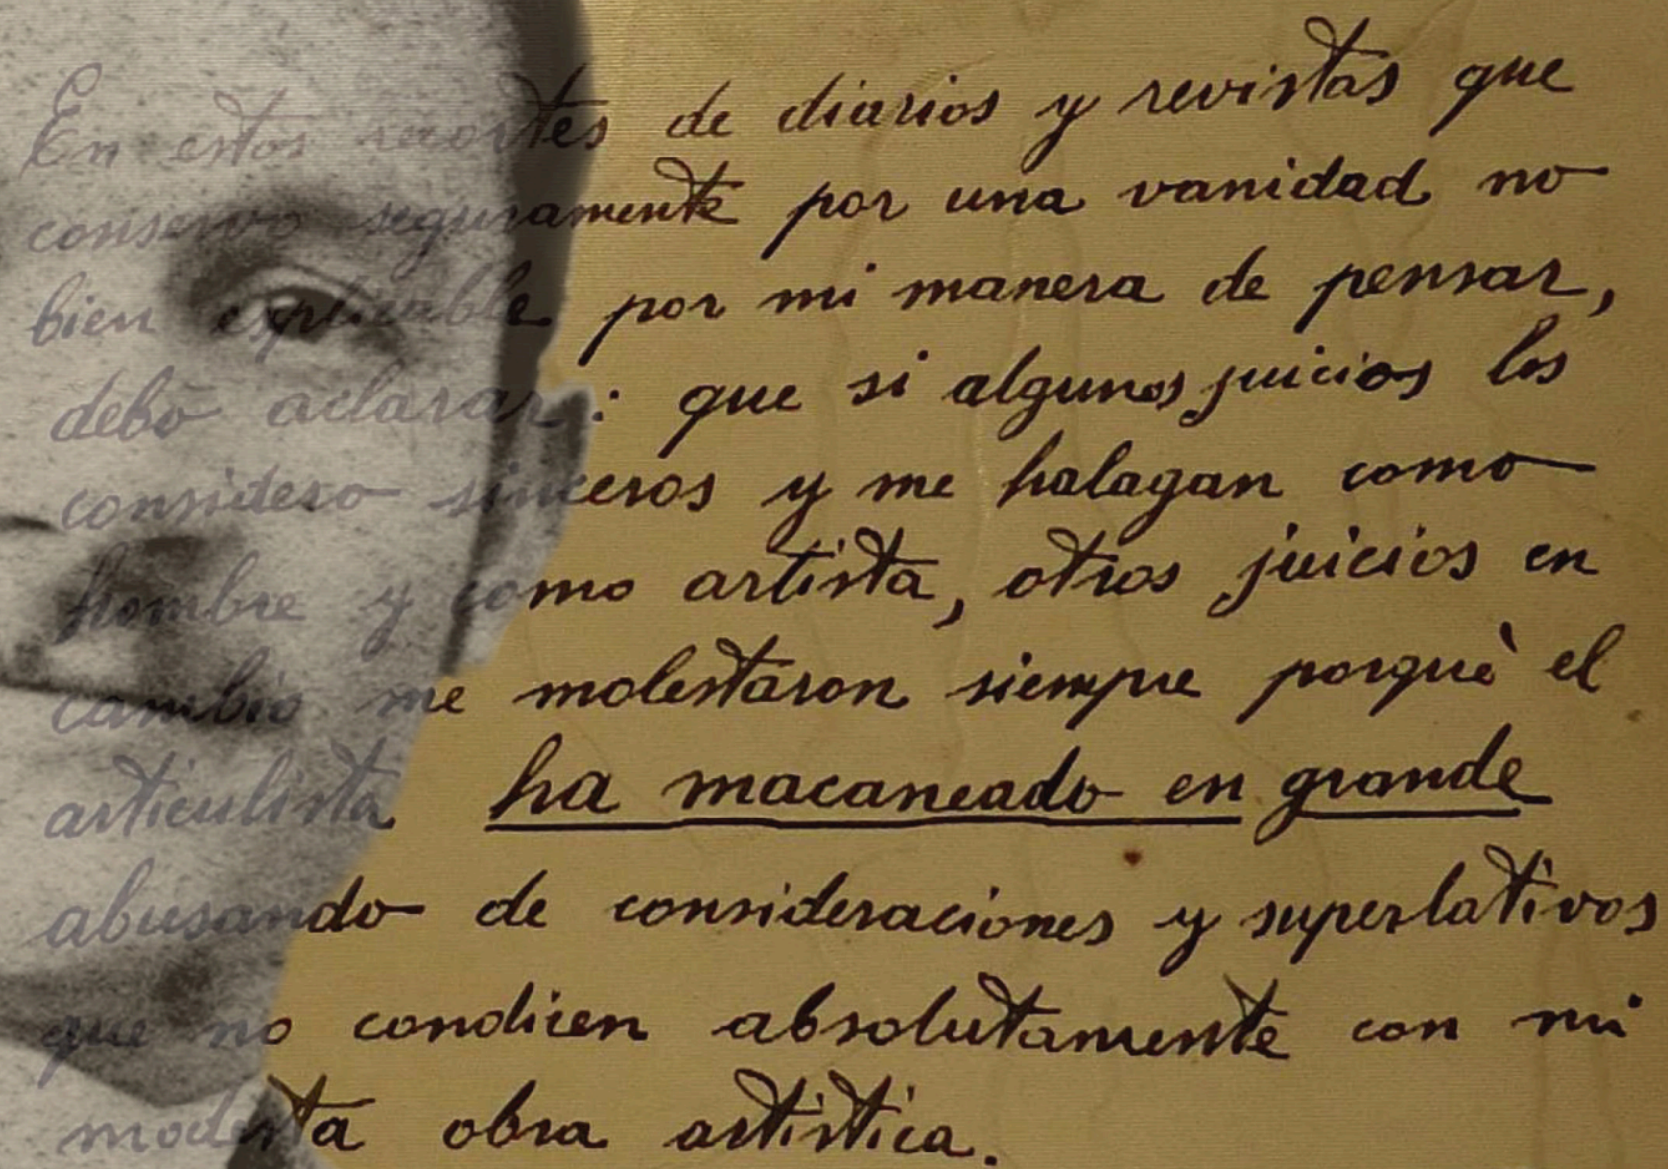 En estos recortes de diarios y revistas que
conservo seguramente por una vanidad no
bien explicable por mi manera de pensar,
debo aclarar: que si algunos juicios los
considero sinceros y me halagan como
hombre y como artista, otros juicios en
cambio me molestaron siempre porquè el
articulista ha macaneado en grande
abusando de consideraciones y superlativos
que no condicen absolutamente con mi
modesta obra artística.